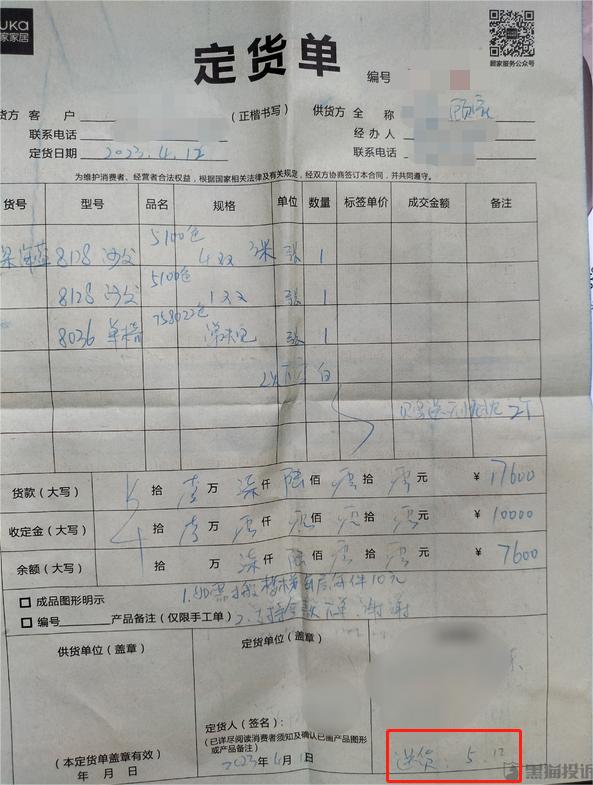 UKA
家家居
定货单
顾家服务公众号
编号
货方 客 户 (正楷书写) 供货方 全 称 顾家
联系电话 经 办 人
定货日期 2023.4.12 联系电话
为维护消费者、经营者合法权益，根据国家相关法律及有关规定，经双方协商签订本合同，并共同遵守。
货号 型号 品名 规格 单位 数量 标签单价 成交金额 备注
8128 沙发 5100色 4双 3米 张 1
8128 沙发 5100色 1双 张 1
8036 单椅 758022色 张 1
以下空白
2个
货款（大写） 拾 壹 万 柒 仟 陆 佰 零 拾 零 元 ¥ 17600
收定金（大写） 拾 壹 万 零 仟 零 佰 零 拾 零 元 ¥ 10000
余额（大写） 拾 万 柒 仟 陆 佰 零 拾 零 元 ¥ 7600
1.如需搬楼梯每层每件10元
成品图形明示
编号 产品备注（仅限手工单） 2. 谢谢
供货单位（盖章） 定货单位（盖章）
定货人（签名）：
(已详尽阅读消费者须知及确认已画产品图形
或产品备注)
(本定货单盖章有效)
年 月 日 2023年4月1日
送货：5.12
黑猫投诉